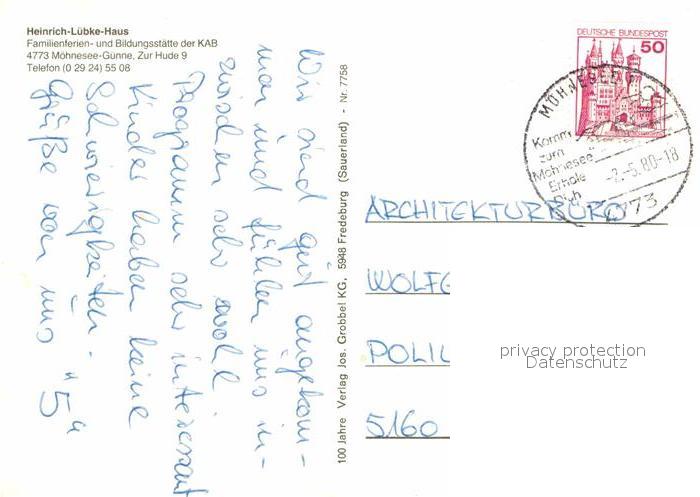 Heinrich-Lübke-Haus
Familienferien- und Bildungsstätte der KAB
4773 Möhnesee-Günne, Zur Hude 9
Telefon (0 29 24) 55 08
Wir sind gut angekom-
men und fühlen uns in-
zwischen sehr wohl
Programm sehr interessant
Kinder haben keine
Schwierigkeiten.
Grüße von uns "5"
100 Jahre Verlag Jos. Grobbel KG, 5948 Fredeburg (Sauerland) - Nr. 7758
DEUTSCHE BUNDESPOST
50
MÖHNESEE
Komm
zum
"Möhnesee"
Erhole
Dich
-2.-5.80-18
4773
ARCHITEKTURBÜRO
WOLFG
POLIL
5160
privacy protection
Datenschutz